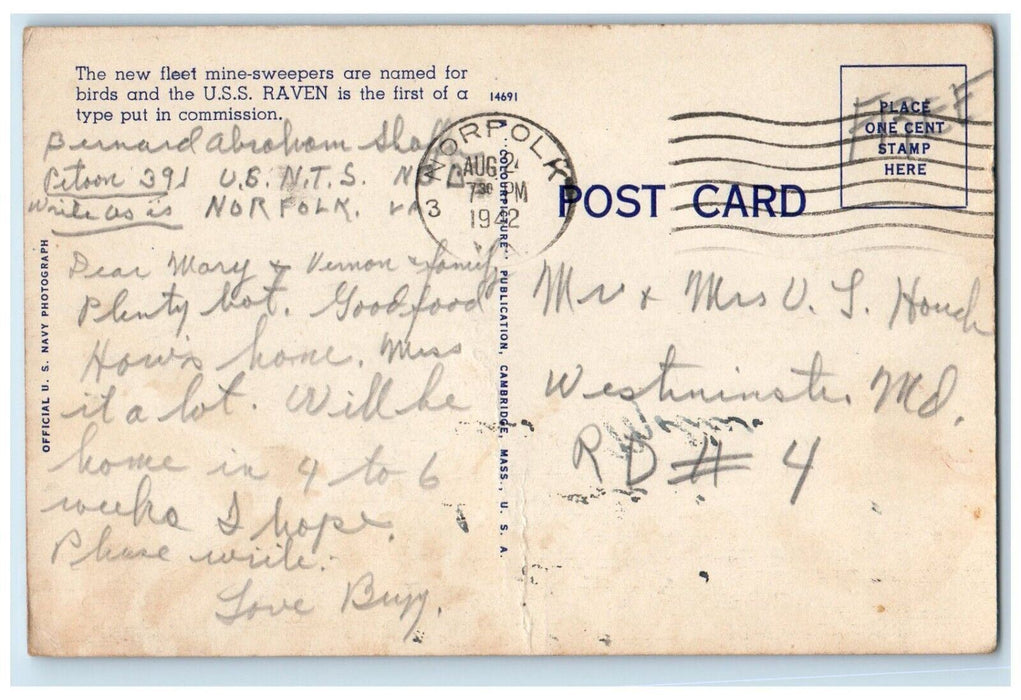 The new fleet mine-sweepers are named for
birds and the U.S.S. RAVEN is the first of a
type put in commission.
14691
Bernard Abraham
391 U.S.N.T.S.
Write as is NORFOLK. VA
Dear Mary & Vernon & family
Plenty hot. Good food
How's home. Miss
it a lot. Will be
home in 4 to 6
weeks I hope.
Please write.
Love
OFFICIAL U. S. NAVY PHOTOGRAPH
"COLOURPICTURE" PUBLICATION, CAMBRIDGE, MASS., U. S. A.
NORFOLK
AUG 24
7 30 PM
1942
3
POST CARD
PLACE
ONE CENT
STAMP
HERE
FREE
Mr & Mrs V. S. Houck
Westminster Md.
R D # 4